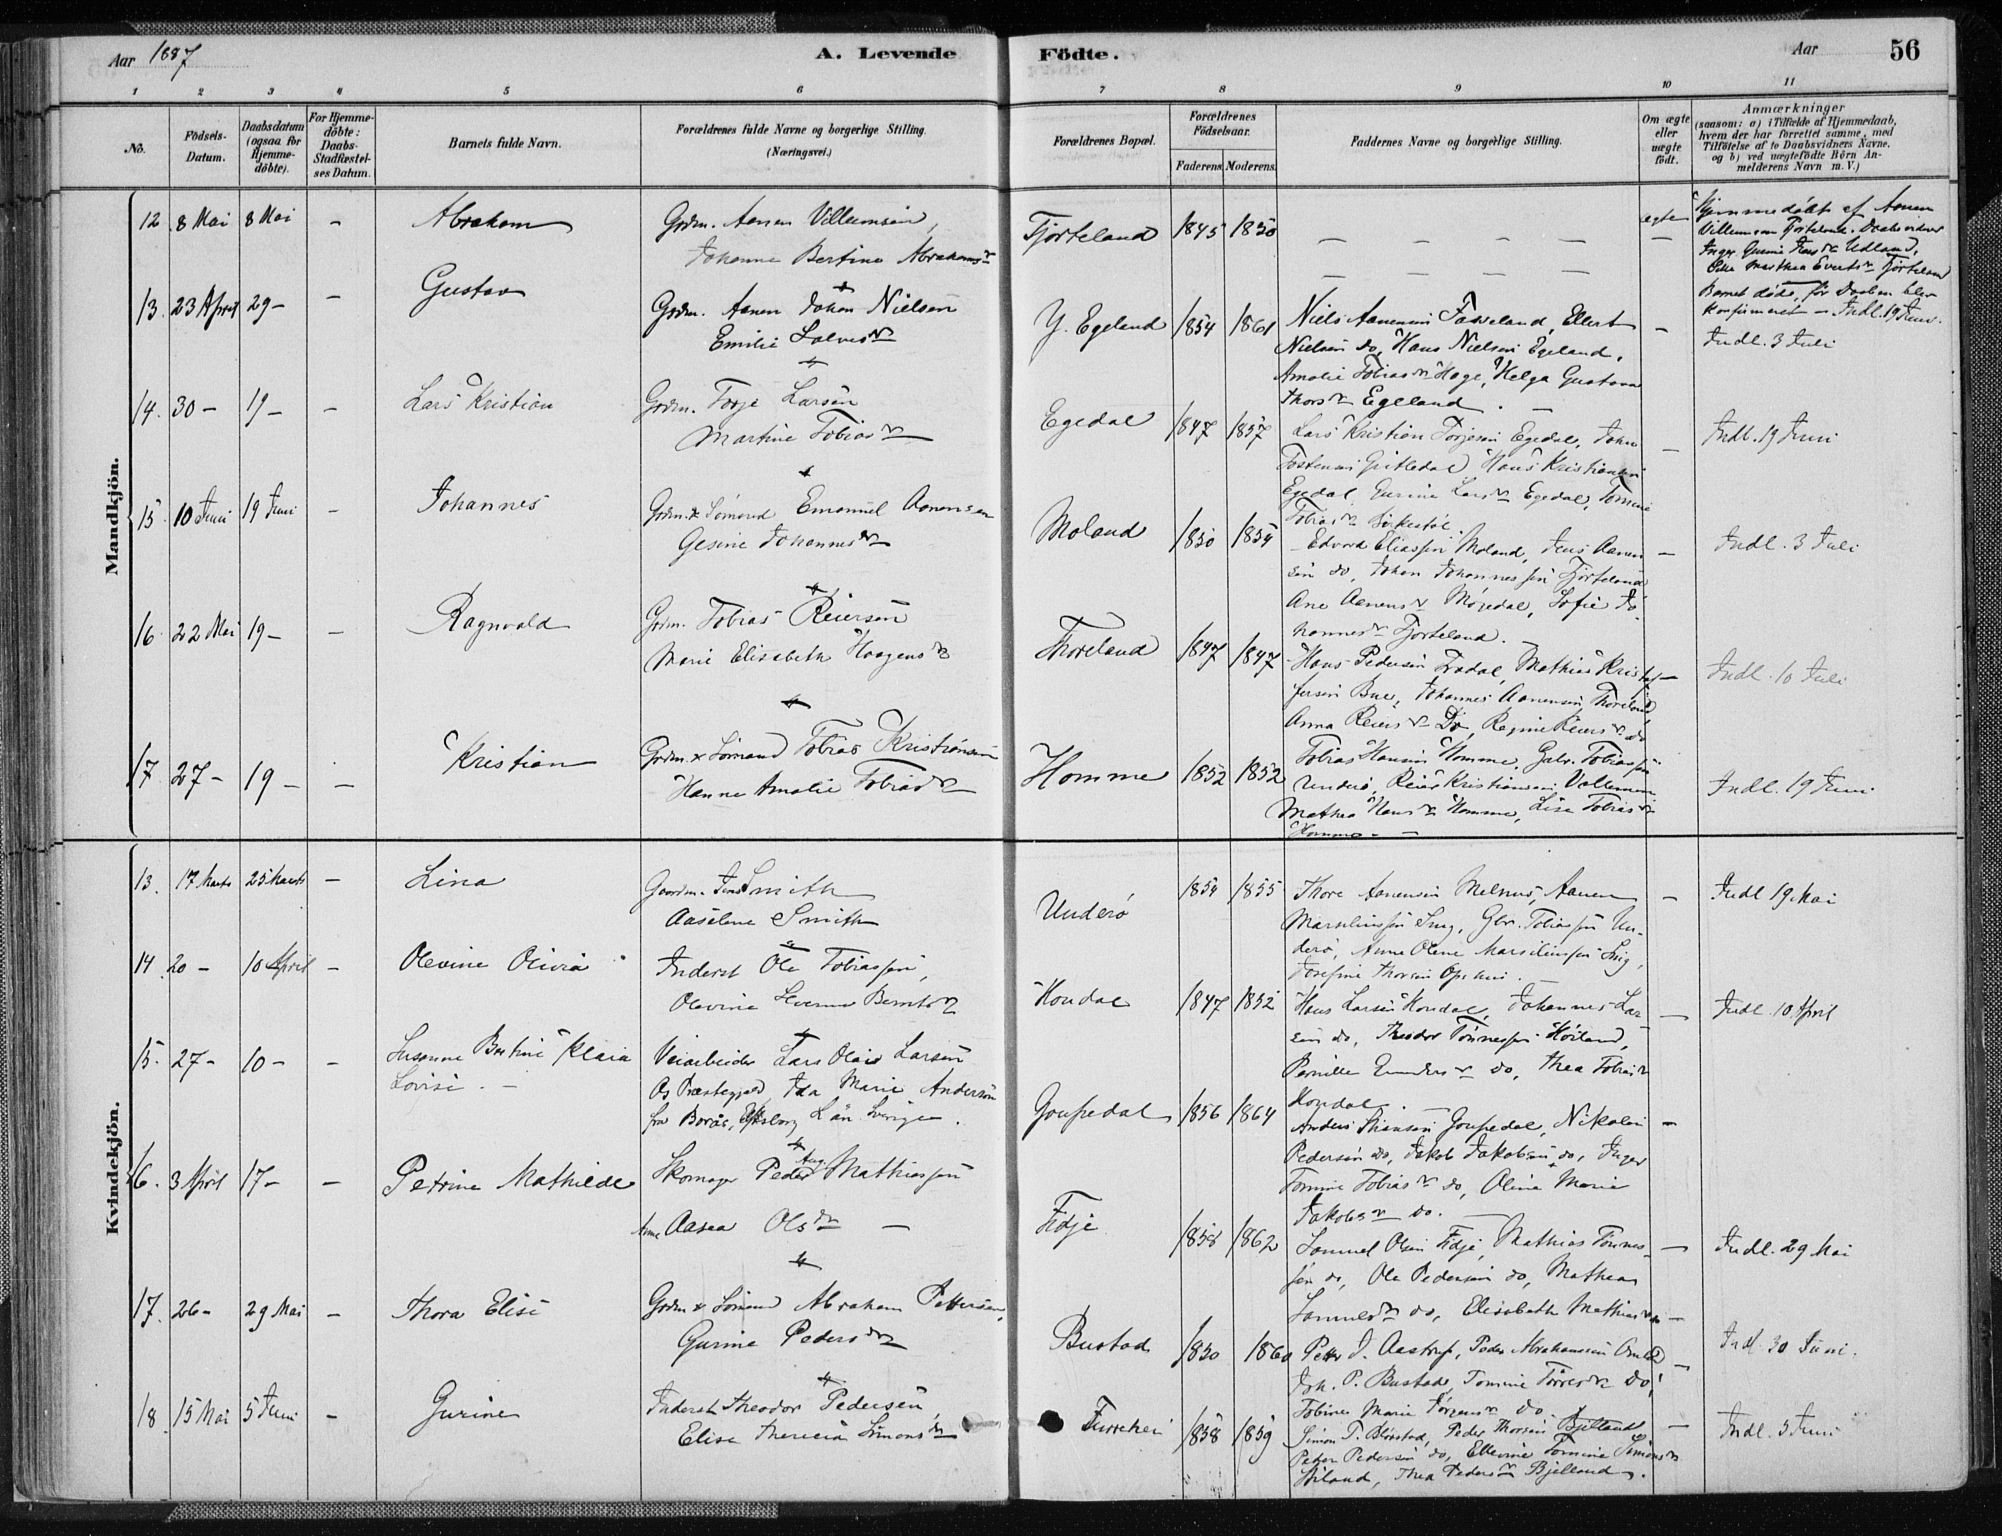 Aar 1887
A. Levende
Födte.
Aar
56
1 2 3 4 5 6 7 8 9 10 11
No.
Födsels-Datum.
Daabsdatum (ogsaa for Hjemme-döbte).
For Hjemme-döbte: Daabs-Stadfæstel-ses Datum.
Barnets fulde Navn.
Forældrenes fulde Navne og borgerlige Stilling.
(Næringsvei.)
Forældrenes Bopæl.
Forældrenes Födselsaar.
Faderens. Moderens.
Faddernes Navne og borgerlige Stilling.
Om ægte eller uægte födt.
Anmærkninger
(saasom: a) i Tilfælde af Hjemmedaab,
hvem der har forrettet samme, med
Tilföielse af to Daabsvidners Navne.
og b) ved uægtefödte Börn An-
melderens Navn m. V.)
Mandkjön.
12. 8 Mai 8 Mai - Abraham
Grdm. Aanen Villumsen,
Johanne Bertine Abrahamsdr
Fjorteland 1845 1850 — — — — —
ægte
Hjemmedöbt af Aanen
Villumsen Fjorteland. Daabsvidner
Udland,
Marthea Evertsdr Fjorteland
Barnet döde, för Daaben blev
konfirmeret - Indl. 19 Juni.
13. 23 April 29 - - Gustav
Grdm. Aanen Johan Nielsen
Emilie Salvesdr
Y. Egeland 1854 1861
Niels Aanensen Faseland, Ellert
Nielsen do, Hans Nielsen Egeland,
Amalie Tobiasdr Hoge, Helga Gustava
Thorsdr Egeland. -
Indl. 3 Juli
14. 30 - 19 - - Lars Kristian
Grdm. Torje Larsen
Martine Tobiasdr
Egedal 1847 1857
Lars Kristian Torjesen Egedal, John
Hans Kristiansen
Egedal, Gurine Larsdr Egedal, Tomine
Tobiasdr
Indl. 19 Juni
15 10 Juni 19 Juni - Johannes
Grdm. & Sömand Emanuel Aanensen
Gesine Johannesdr
Moland 1850 1854
Edvard Eliassen Moland, Jens Aanen-
sen do, Johan Johannessen Fjorteland
Ane Aanensdr Mögedal, Sofie Jo-
hannesdr Fjorteland. -
Indl. 3 Juli
16. 22 Mai 19 - - Ragnvald
Grdm. Tobias Reiersen
Marie Elisabeth Haagensdr
Thoreland 1847 1847
Hans Pedersen Fredal, Mathias Kristof-
fersen Bue, Johannes Aanensen Thoreland,
Anna Reiersdr Do, Regine Reiersdr do
Indl. 10 Juli
17 27 - 19 - - Kristian
Grdm. & Sömand Tobias Kristiansen
Hanne Amalie Tobiasdr
Homme 1852 1852
Tobias Hansen Homme, Gabr. Tobiassen
Underö, Reier Kristiansen
Mathea Hansdr Homme, Lise Tobiasdr
Homme. -
Indl. 19 Juni
Kvindekjön.
13. 17 Marts 25 Marts - Lina
Gaardm. Jens Smith
Aaselene Smith
Underö 1854 1855
Thore Aanensen Melnes, Aanen
Marseliussen Snig, Gbr. Tobiassen Un-
derö, Anne Olene Marseliussen Snig,
Josefine Thorsen
Indl 19 Mai
14 20 - 10 April - Olevine Olivia
Inderst Ole Tobiassen,
Olevine Berntsdr
Hondal 1847 1852
Hans Larsen Hondal, Johannes Lar-
sen do, Theodor Tönnessen Höiland,
Pernille do, Thea Tobiasdr
Hondal.
Indl. 10 April
15. 27 - 10 - - Susanne Bertine Klara
Lovise. -
Veiarbeider Lars Olais Larsen
Os Præstegjeld, Ida Marie Anderson
fra Borås, Elfsborg Län Sverige.
Goupedal 1856 1864
Anders Goupedal, Nikolai
Pedersen do, Jakob Jakobsen do, Inger
Tomine Tobiasdr do, Olina Marie
Jakobsdr do. -
16. 3 April 17 - - Petrine Mathilde
Skomager Peder Aug. Mathiassen
Anne Aasea Olsdr -
Fidje 1858 1862
Samuel Olsen Fidje, Mathias Tönnes-
sen do, Ole Pedersen do, Mathea
Samuelsdr do, Elisabeth Mathiasdr do
Indl. 29 Mai
17. 26 - 29 Mai - Thora Elise
Grdm & Sömand Abraham Pettersen,
Gurine Pedersdr
Bustad 1850 1860
Petter J. Aastrup, Peder Abrahamsen
Joh. P. Bustad, Tomine do,
Tobine Marie do
Indl 30 Juni.
18. 15 Mai 5 Juni - Gurine
Inderst Theodor Pedersen
Elise Theresia Simonsdr
Furrehei 1858 1859
Simon T. Peder Thorsen Bjelland
Peder Pedersen do, Ellevine Tomine Simonsdr
Höiland, Thea Pedersdr Bjelland.
Indl. 5 Juni